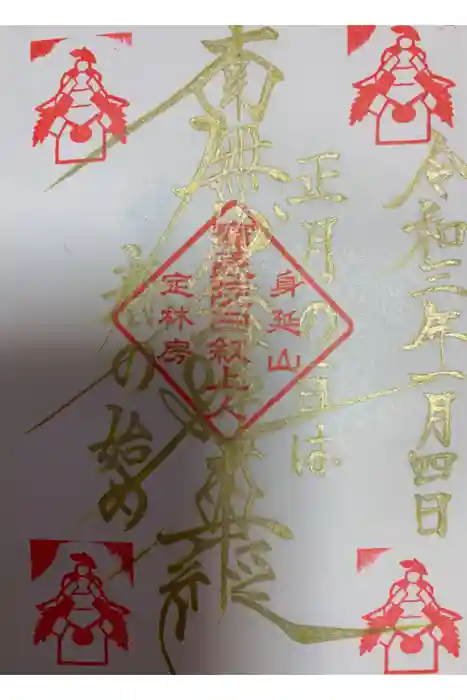 令和三年一月四日
正月の一日は
南無妙法蓮華経
春の始め
身延山
寶蔵院日叙上人
定林房